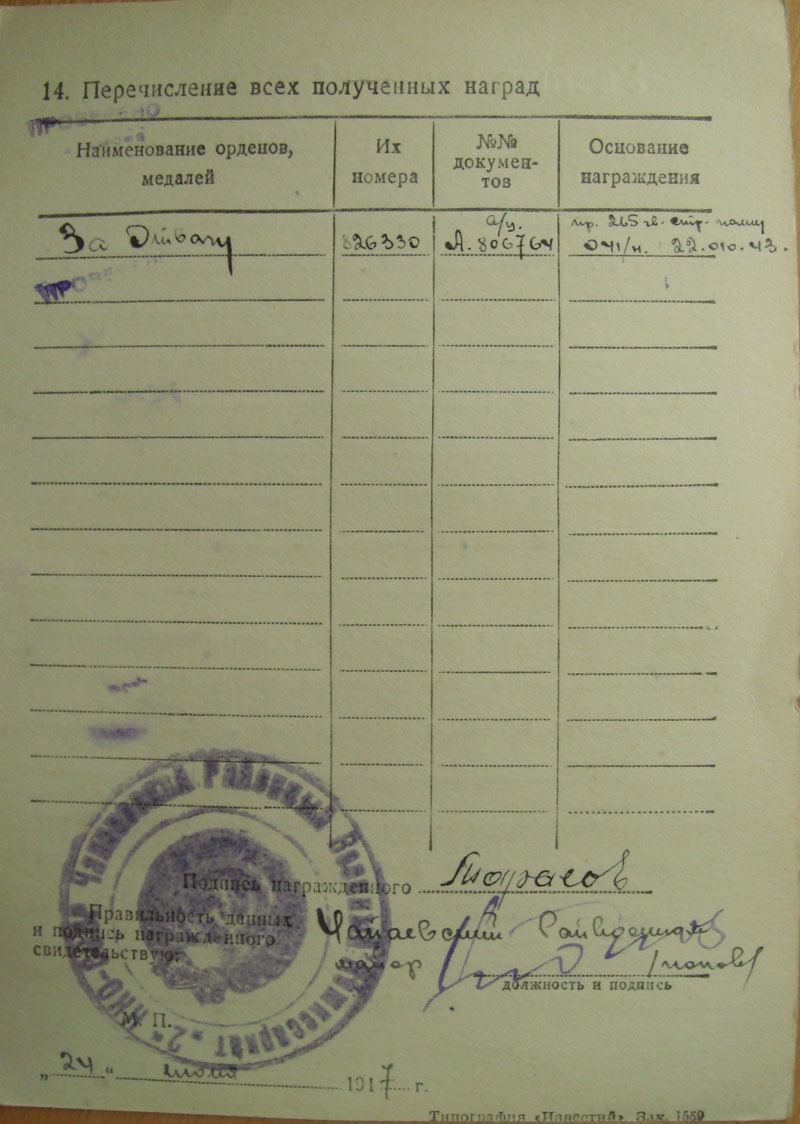 14. Перечисление всех полученных наград
Наименование орденов, медалей
Их номера
№№ документов
Основание награждения
За Отвагу
826330
а/у.
А. 806764
пр. 265 гв. стр. полку
041/н. 22.010.43.
Подпись награжденного
Правильность данных
и подпись награжденного
свидетельствую:
Чапаевский Райвоенком
майор
должность и подпись
М. П.
„24“ июля 1947 г.
Типография «Известий». Зак. 1559
Чапаевский Районный Военный Комиссариат